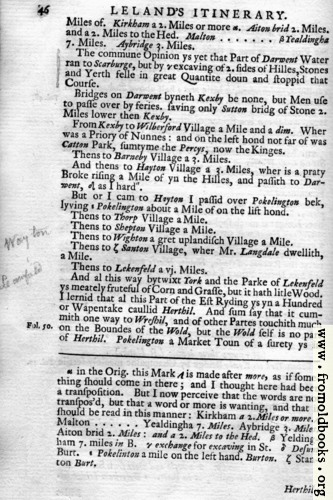 46 LELAND'S ITINERARY.
Miles of. Kirkham a 2. Miles or more α. Aiton brid 2. Miles.
and a 2. Miles to the Hed. Malton . . . . . . . β Yealdingha
7. Miles. Aybridge 3. Miles.
The commune Opinion ys yet that Part of Darwent Water
ran to Scarburge, but by γ excaving of 2. sides of Hilles, Stones
and Yerth felle in great Quantite doun and stoppid that
Course.
Bridges on Darwent byneth Kexby be none, but Men use
to passe over by feries. saving only Sutton bridg of Stone 2.
Miles lower then Kexby.
From Kexby to Wilberford Village a Mile and a dim. Wher
was a Priory of Nunnes: and on the left hond not far of was
Catton Park, sumtyme the Percys, now the Kinges.
Thens to Barneby Village a 3. Miles.
And thens to Hayton Village a 3. Miles, wher is a praty
Broke rising a Mile of yn the Hilles, and passith to Dar-
went, as I hard".
But or I cam to Hayton I passid over Pokelington bek,
lyving ε Pokelington about a Mile of on the lift hond.
Thens to Thorp Village a Mile.
Thens to Shepton Village a Mile.
Thens to Wighton a gret uplandisch Village a Mile.
Thens to ζ Santon Village, wher Mr. Langdale dwellith,
a Mile.
Thens to Lekenfeld a vj. Miles.
And al this way bytwixt York and the Parke of Lekenfeld
ys meately fruteful of Corn and Grasse, but it hath litle Wood.
I lernid that al this Part of the Est Ryding ys yn a Hundred
or Wapentake caullid Herthil. And sum say that it cum-
mith one way to Wresehil, and of other Partes touchith much
Fol. 50. on the Boundes of the Wold, but the Wold self is no pa
of Herthil. Pokelington a Market Toun of a surety ys
α in the Orig. this Mark A is made after more, as if some
thing should come in there; and I thought here had been
a transposition. But I now perceive that the words are no
transpos'd, but that a word or more is wanting, and that
should be read in this manner: Kirkham a 2. Miles or more.
Malton . . . . . . Yealdingha 7. Miles. Aybridge 3. Mile
Aiton brid 2. Miles: and a 2. Miles to the Hed. β Yelding
ham 7. miles in B. γ exchange for excaving in St.
Burt. ε Pokelinton a mile on the left hand. Burton. ζ Stan
ton Burt.
Herthil
www.fromoldbooks.org